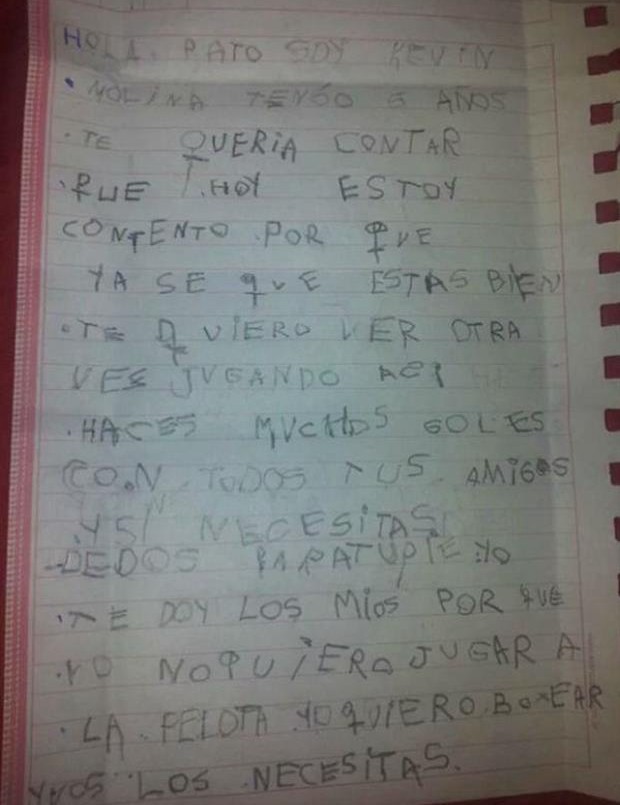 HOLA. PATO SOY KEVIN
MOLINA TENGO 5 AÑOS
.TE QUERIA CONTAR
.QUE HOY ESTOY
CONTENTO.POR QUE
YA SE QUE ESTAS BIEN
.TE QUIERO VER OTRA
VES JUGANDO ACI
.HACES MUCHOS GOLES
CON.TODOS TUS.AMIGOS
.YSI NECESITAS
-DEDOS PARATUPIE.YO
.TE DOY LOS MIOS POR QUE
.YO NOQUIERO JUGAR A
.LA.PELOTA.YOQUIERO.BOXEAR
LOS.NECESITAS.